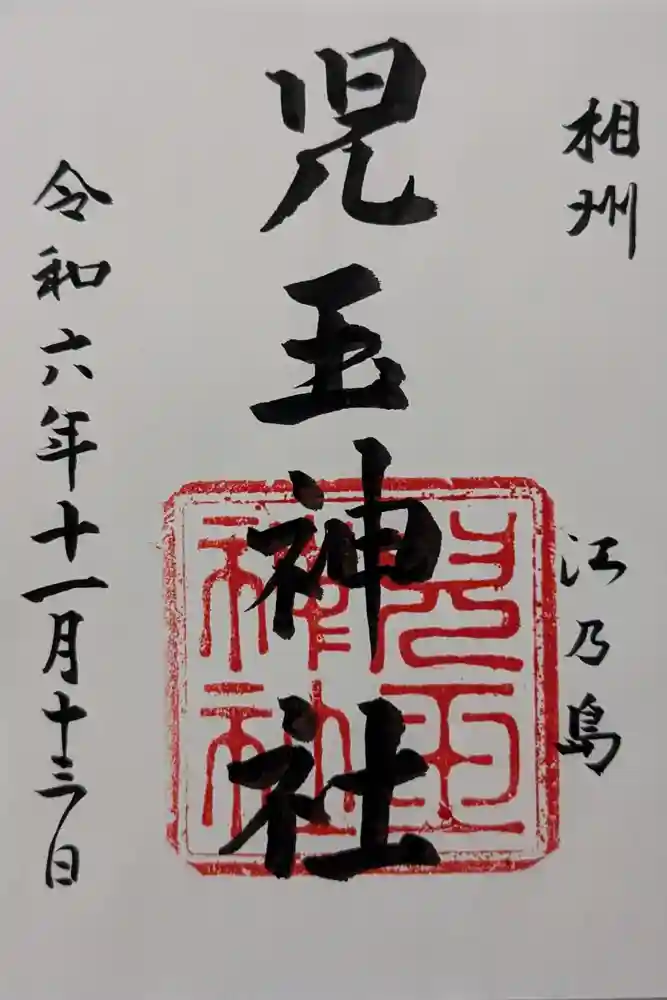 相州
江乃島
児玉神社
児玉
神社
令和六年十一月十三日